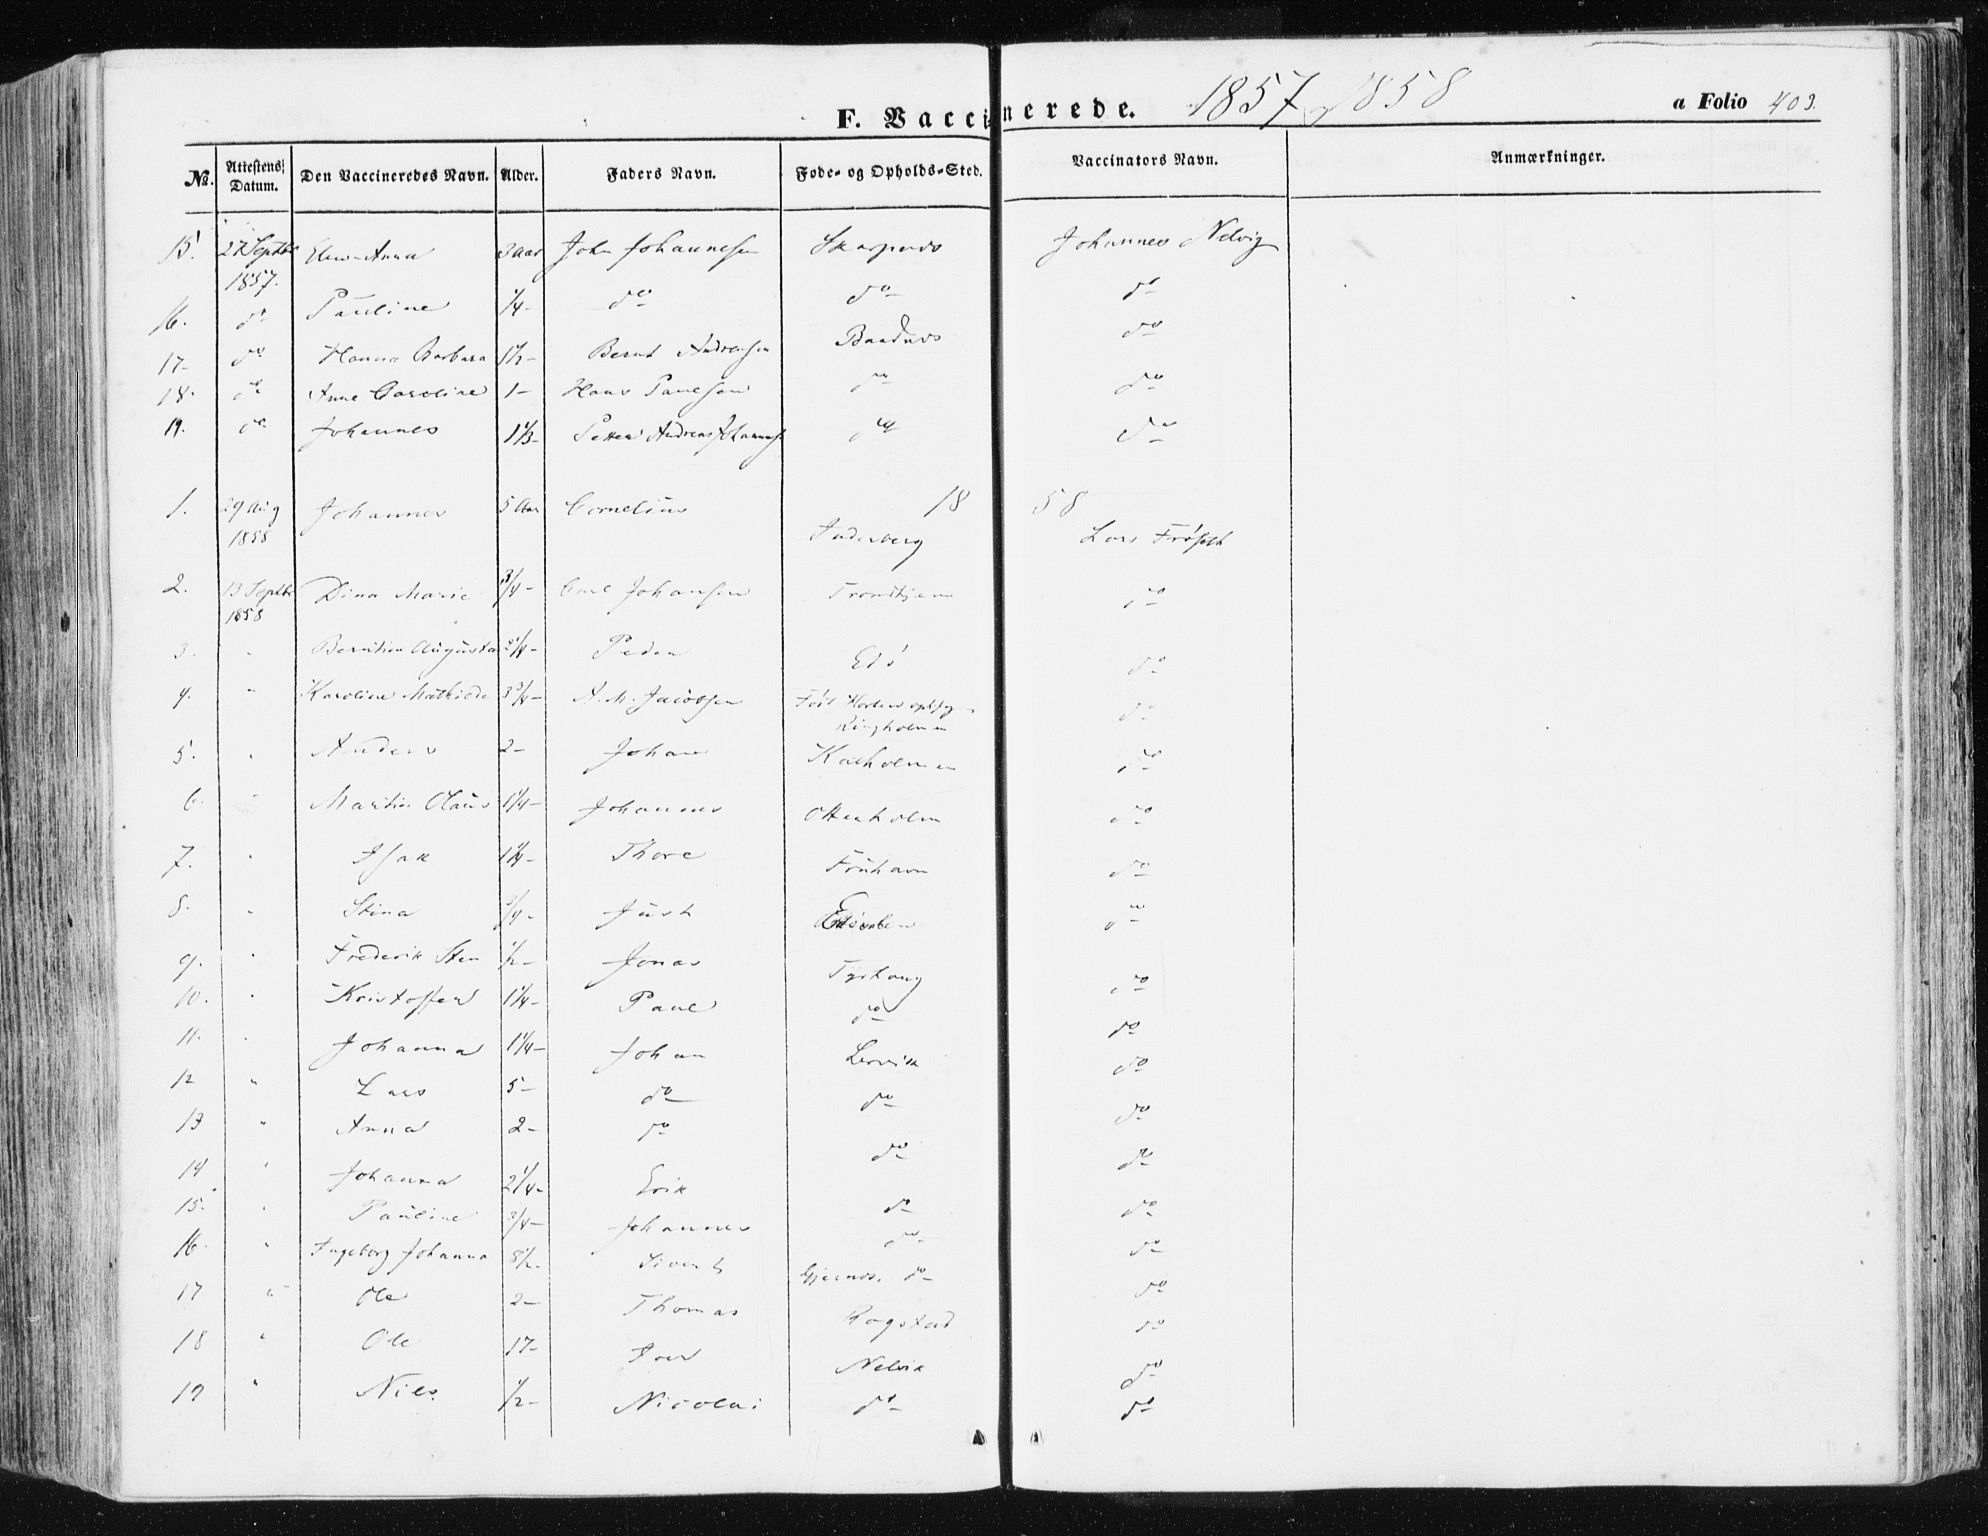 F. Vaccinerede. 1857 og 1858 a Folio 403.
No. Attestens Datum. Den Vaccineredes Navn. Alder. Faders Navn. Føde- og Opholds-Sted. Vaccinators Navn. Anmærkninger.
15. 27 Septbr 1857. Elen Anna 3 Aar John Johannesen Skarpnes Johannes Nelvig
16. do Pauline 1/4 - do do do
17. do Hanna Barbara 1 1/2 - Bernt Andreasen Baadnes do
18. do Anne Caroline 1 - Hans Paulsen do do
19. do Johannes 1 1/3 - Petter Andreas Johannes do do
1858
1. 29 Aug 1858 Johannes 5 Aar Cornelius Inderberg Lars Frøseth
2. 13 Septbr 1858 Dina Marie 3/4 - Carl Johansen Trondhjem do
3. " Augusta 2 1/4 - Peder Edø do
4. " Karoline Mathilde 3 3/4 - A. M. Jacobsen Ringholmen do
5. " Anders 2 - Johan Kalholmen do
6. " Martin Olaus 1 1/4 - Johannes do
7. " Isak 1 1/4 - Thore do
8. " Stina 3/4 - Just do
9. " Frederik Sten 1/2 - Jonas Tyrhaug do
10. " Kristoffer 1 1/4 - Paul do do
11. " Johanna 1 1/4 - Johan Lervik do
12 " Lars 5 - do do do
13 " Anna 2 - do do do
14 " Johanna 2 1/4 - Erik do do
15. " Pauline 3/4 - Johannes do do
16. " Ingeborg Johanna 8 1/2 - Sivert do do
17 " Ole 2 - Thomas Rogstad do
18 " Ole 17 - Iver Nelvik do
19 " Nils 1/2 - Nicolai do do